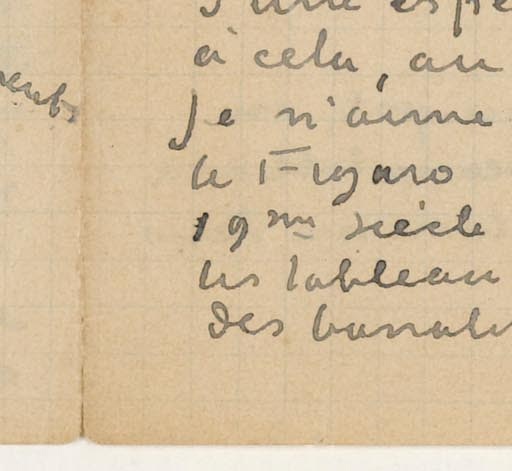 d'une espè
à cela, au
Je n'aime
le Figaro
19ème siècle
les tableau
des banali